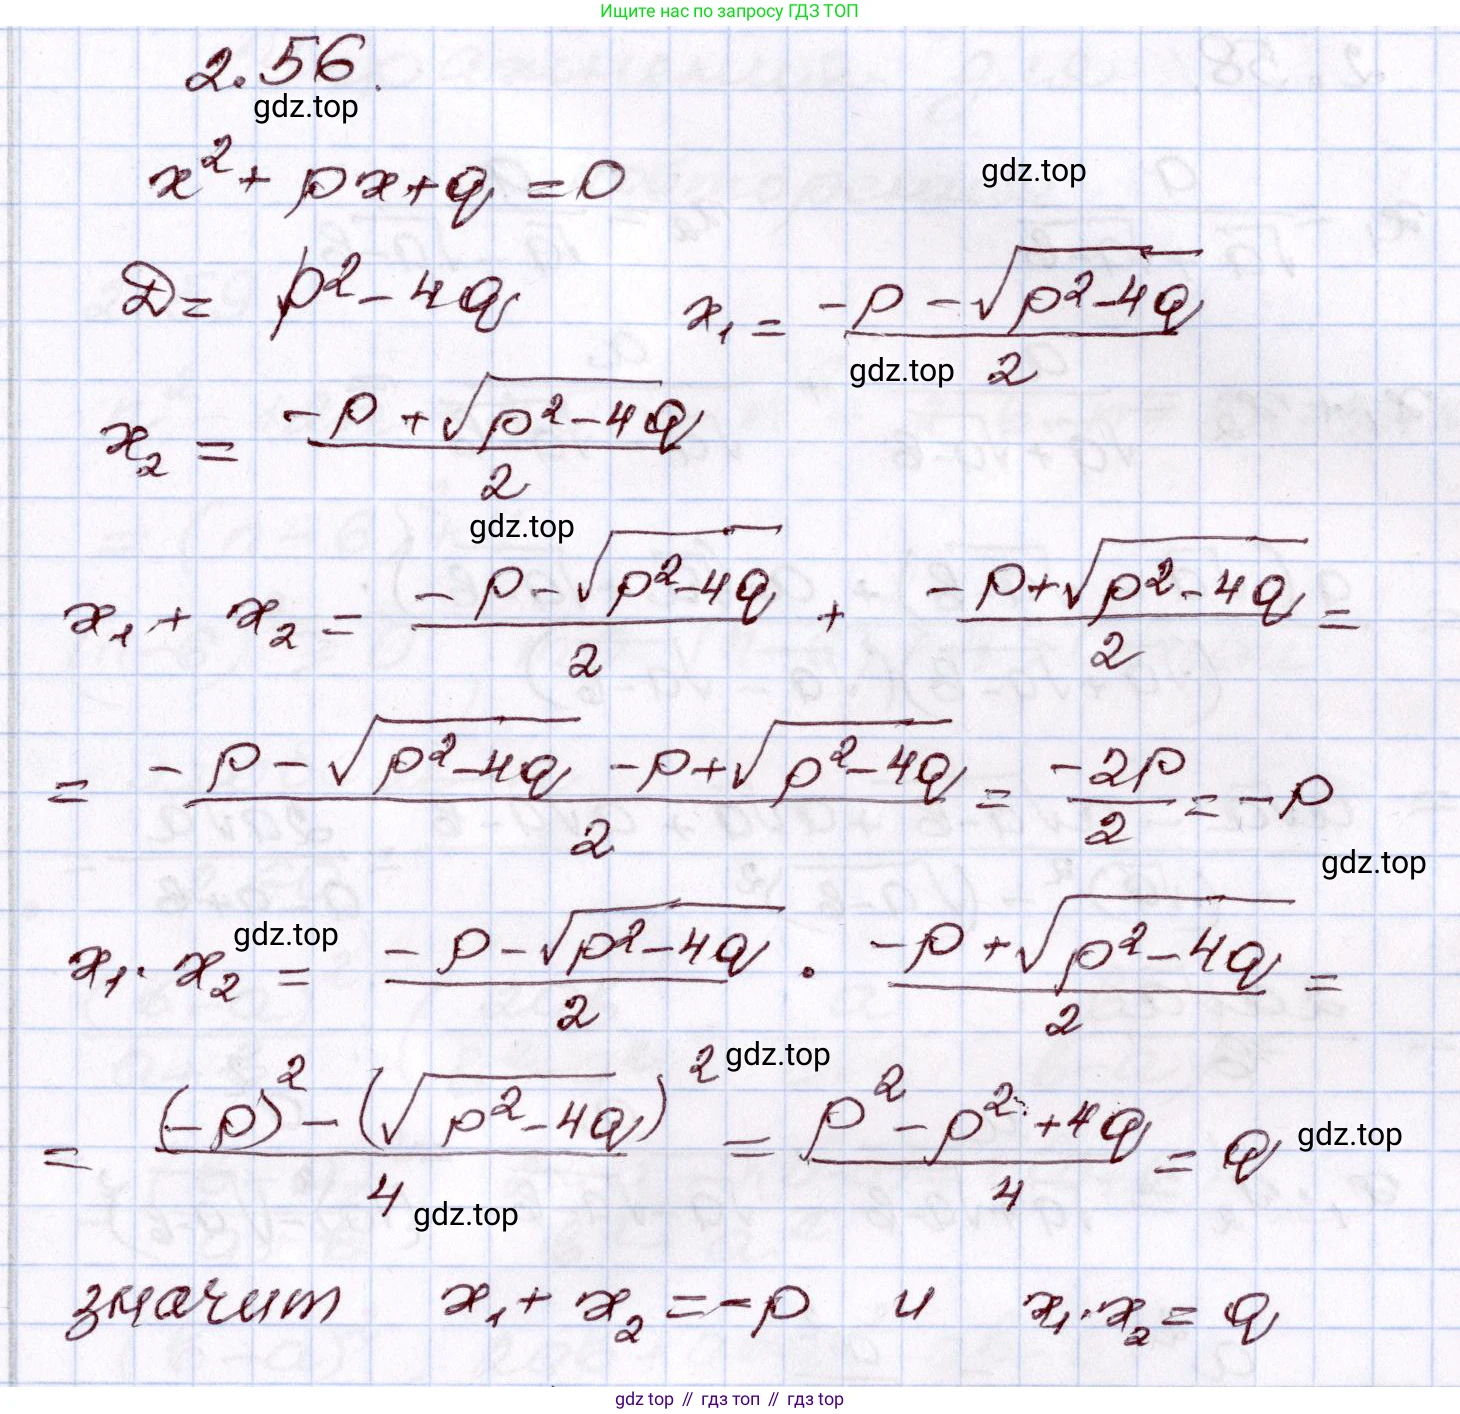 Ищите нас по запросу ГДЗ ТОП
2.56.
gdz.top
x² + px + q = 0
gdz.top
D = p² - 4q   x₁ = (-p - √(p² - 4q)) / 2
gdz.top
x₂ = (-p + √(p² - 4q)) / 2
gdz.top
x₁ + x₂ = (-p - √(p² - 4q)) / 2 + (-p + √(p² - 4q)) / 2 =
= (-p - √(p² - 4q) - p + √(p² - 4q)) / 2 = -2p / 2 = -p
gdz.top
gdz.top
x₁ · x₂ = (-p - √(p² - 4q)) / 2 · (-p + √(p² - 4q)) / 2 =
gdz.top
= ((-p)² - (√(p² - 4q))²) / 4 = (p² - p² + 4q) / 4 = q
gdz.top
gdz.top
значит x₁ + x₂ = -p и x₁ · x₂ = q
gdz top // гдз топ // gdz top